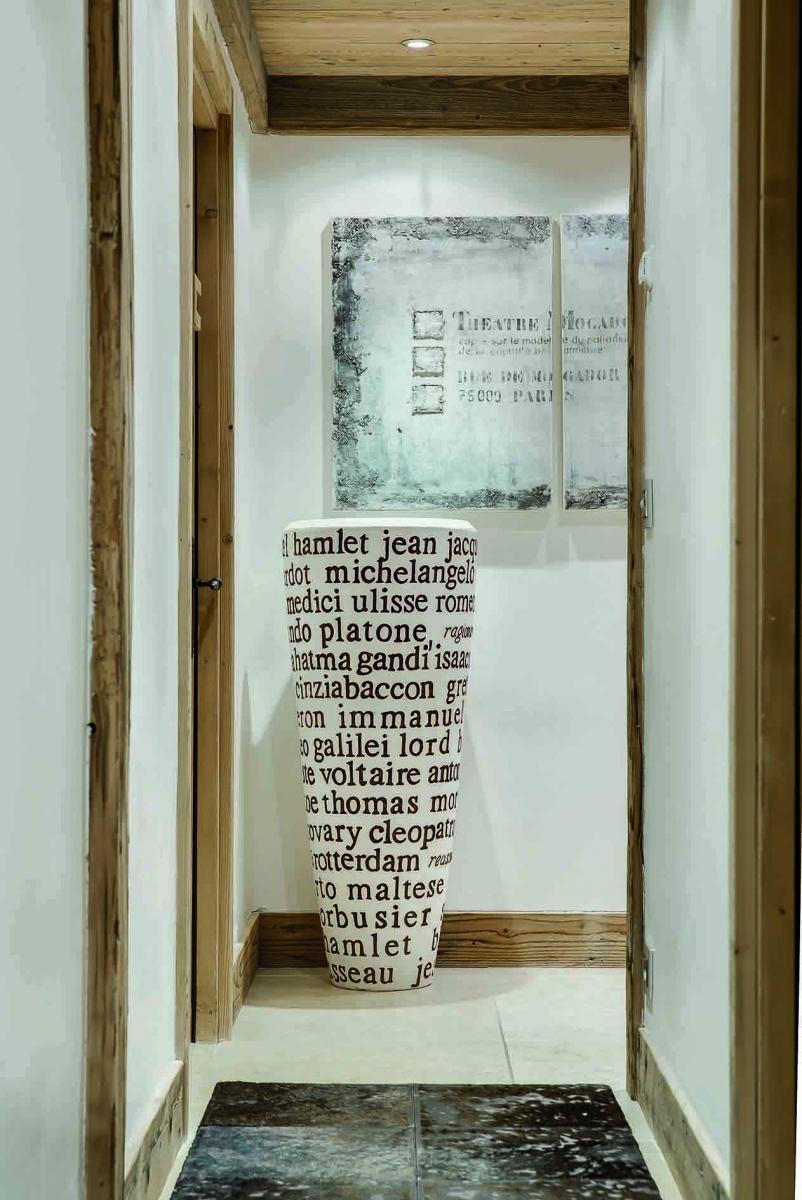 THEATRE MOGADO
copie sur le modele du palladiu
RUE DE MOGADOR
75009 PARIS
l hamlet jean jacqu
rdot michelangelo
medici ulisse rome
ndo platone, ragione
ahatma gandi isaac
cinziabaccon gre
ron immanuel
eo galilei lord b
te voltaire anto
be thomas mor
ovary cleopatr
rotterdam reaso
rto maltese
orbusier
hamlet b
sseau je